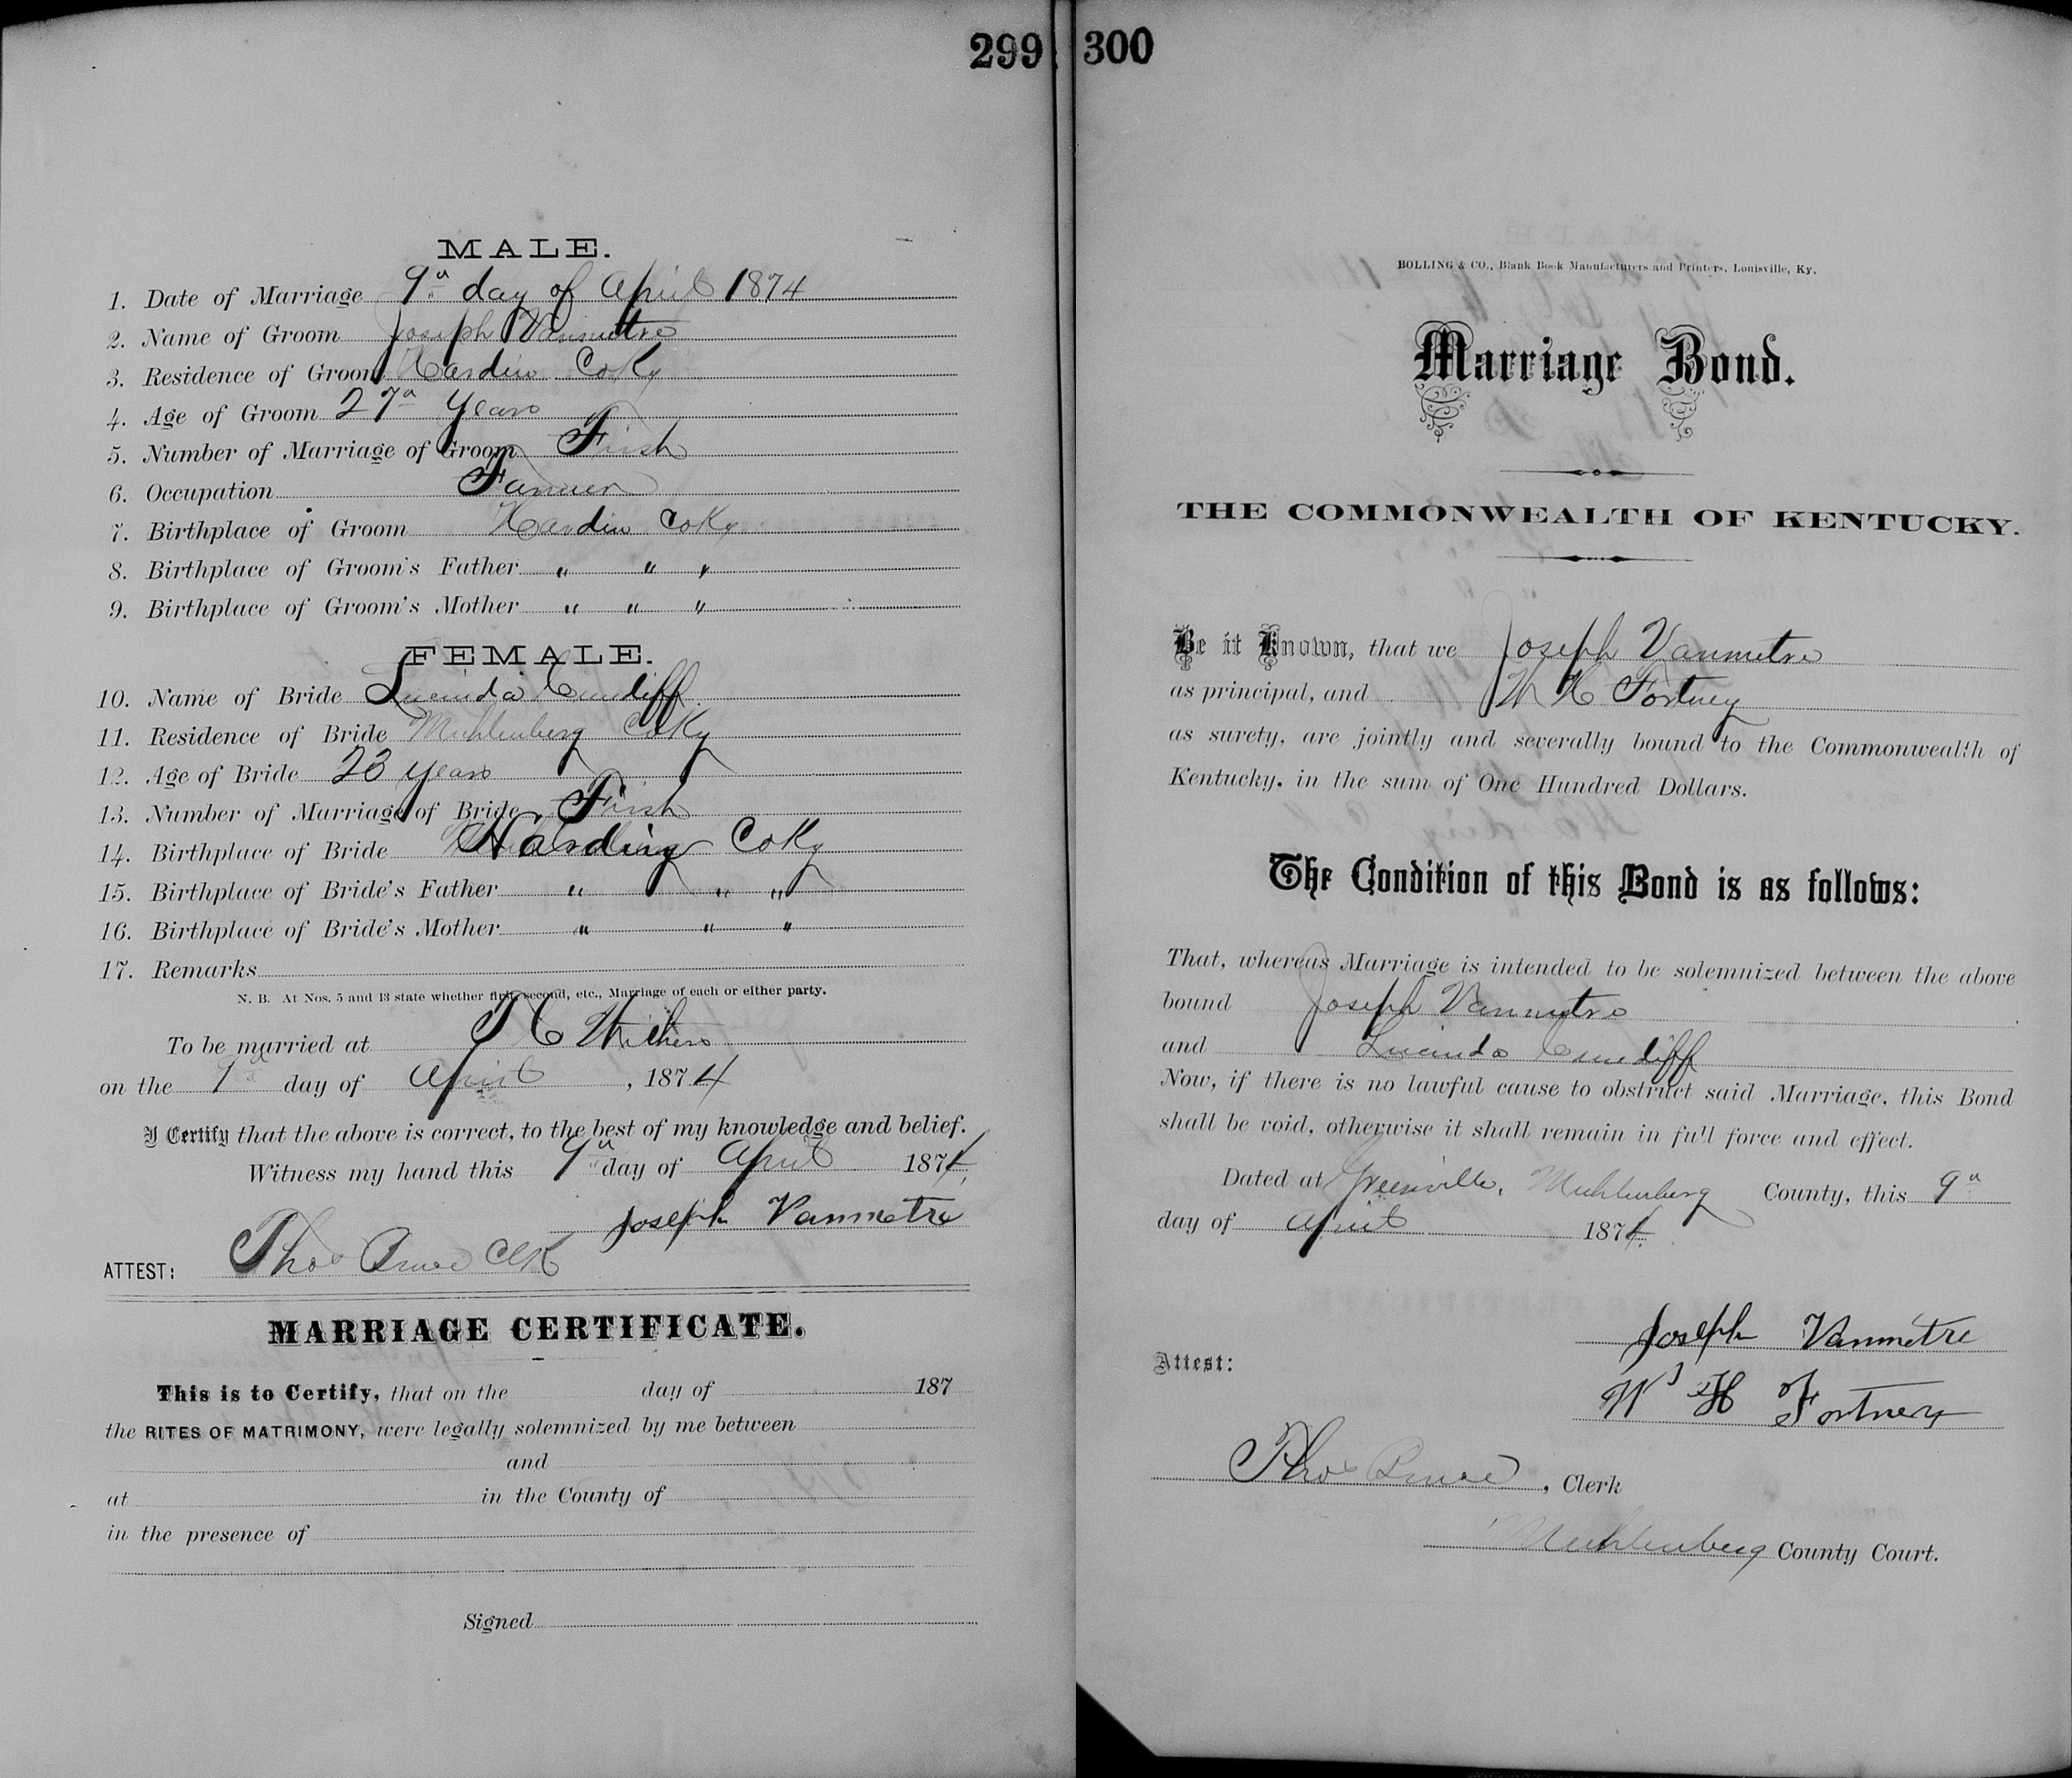 299
MALE.
1. Date of Marriage 9" day of April 1874
2. Name of Groom Joseph Vanmetre
3. Residence of Groom Hardin Co Ky
4. Age of Groom 27" years
5. Number of Marriage of Groom First
6. Occupation Farmer
7. Birthplace of Groom Hardin Co Ky
8. Birthplace of Groom's Father " " "
9. Birthplace of Groom's Mother " " "
FEMALE.
10. Name of Bride Lucinda Cundiff
11. Residence of Bride Muhlenberg Co Ky
12. Age of Bride 23 years
13. Number of Marriage of Bride First
14. Birthplace of Bride Harding Co Ky
15. Birthplace of Bride's Father " " "
16. Birthplace of Bride's Mother " " "
17. Remarks
N. B. At Nos. 5 and 13 state whether first, second, etc., Marriage of each or either party.
To be married at Withers
on the 9" day of April, 1874
I Certify that the above is correct, to the best of my knowledge and belief.
Witness my hand this 9" day of April 1874,
Joseph Vanmetre
ATTEST: Thos Bruce Clk
MARRIAGE CERTIFICATE.
This is to Certify, that on the day of 187
the RITES OF MATRIMONY, were legally solemnized by me between
and
at in the County of
in the presence of
Signed
300
BOLLING & CO., Blank Book Manufacturers and Printers, Louisville, Ky.
Marriage Bond.
THE COMMONWEALTH OF KENTUCKY.
Be it Known, that we Joseph Vanmetre
as principal, and W H Fortney
as surety, are jointly and severally bound to the Commonwealth of
Kentucky, in the sum of One Hundred Dollars.
The Condition of this Bond is as follows:
That, whereas Marriage is intended to be solemnized between the above
bound Joseph Vanmetre
and Lucinda Cundiff
Now, if there is no lawful cause to obstruct said Marriage, this Bond
shall be void, otherwise it shall remain in full force and effect.
Dated at Greenville, Muhlenberg County, this 9"
day of April 1874.
Joseph Vanmetre
Attest:
W H Fortney
Thos Bruce, Clerk
Muhlenberg County Court.